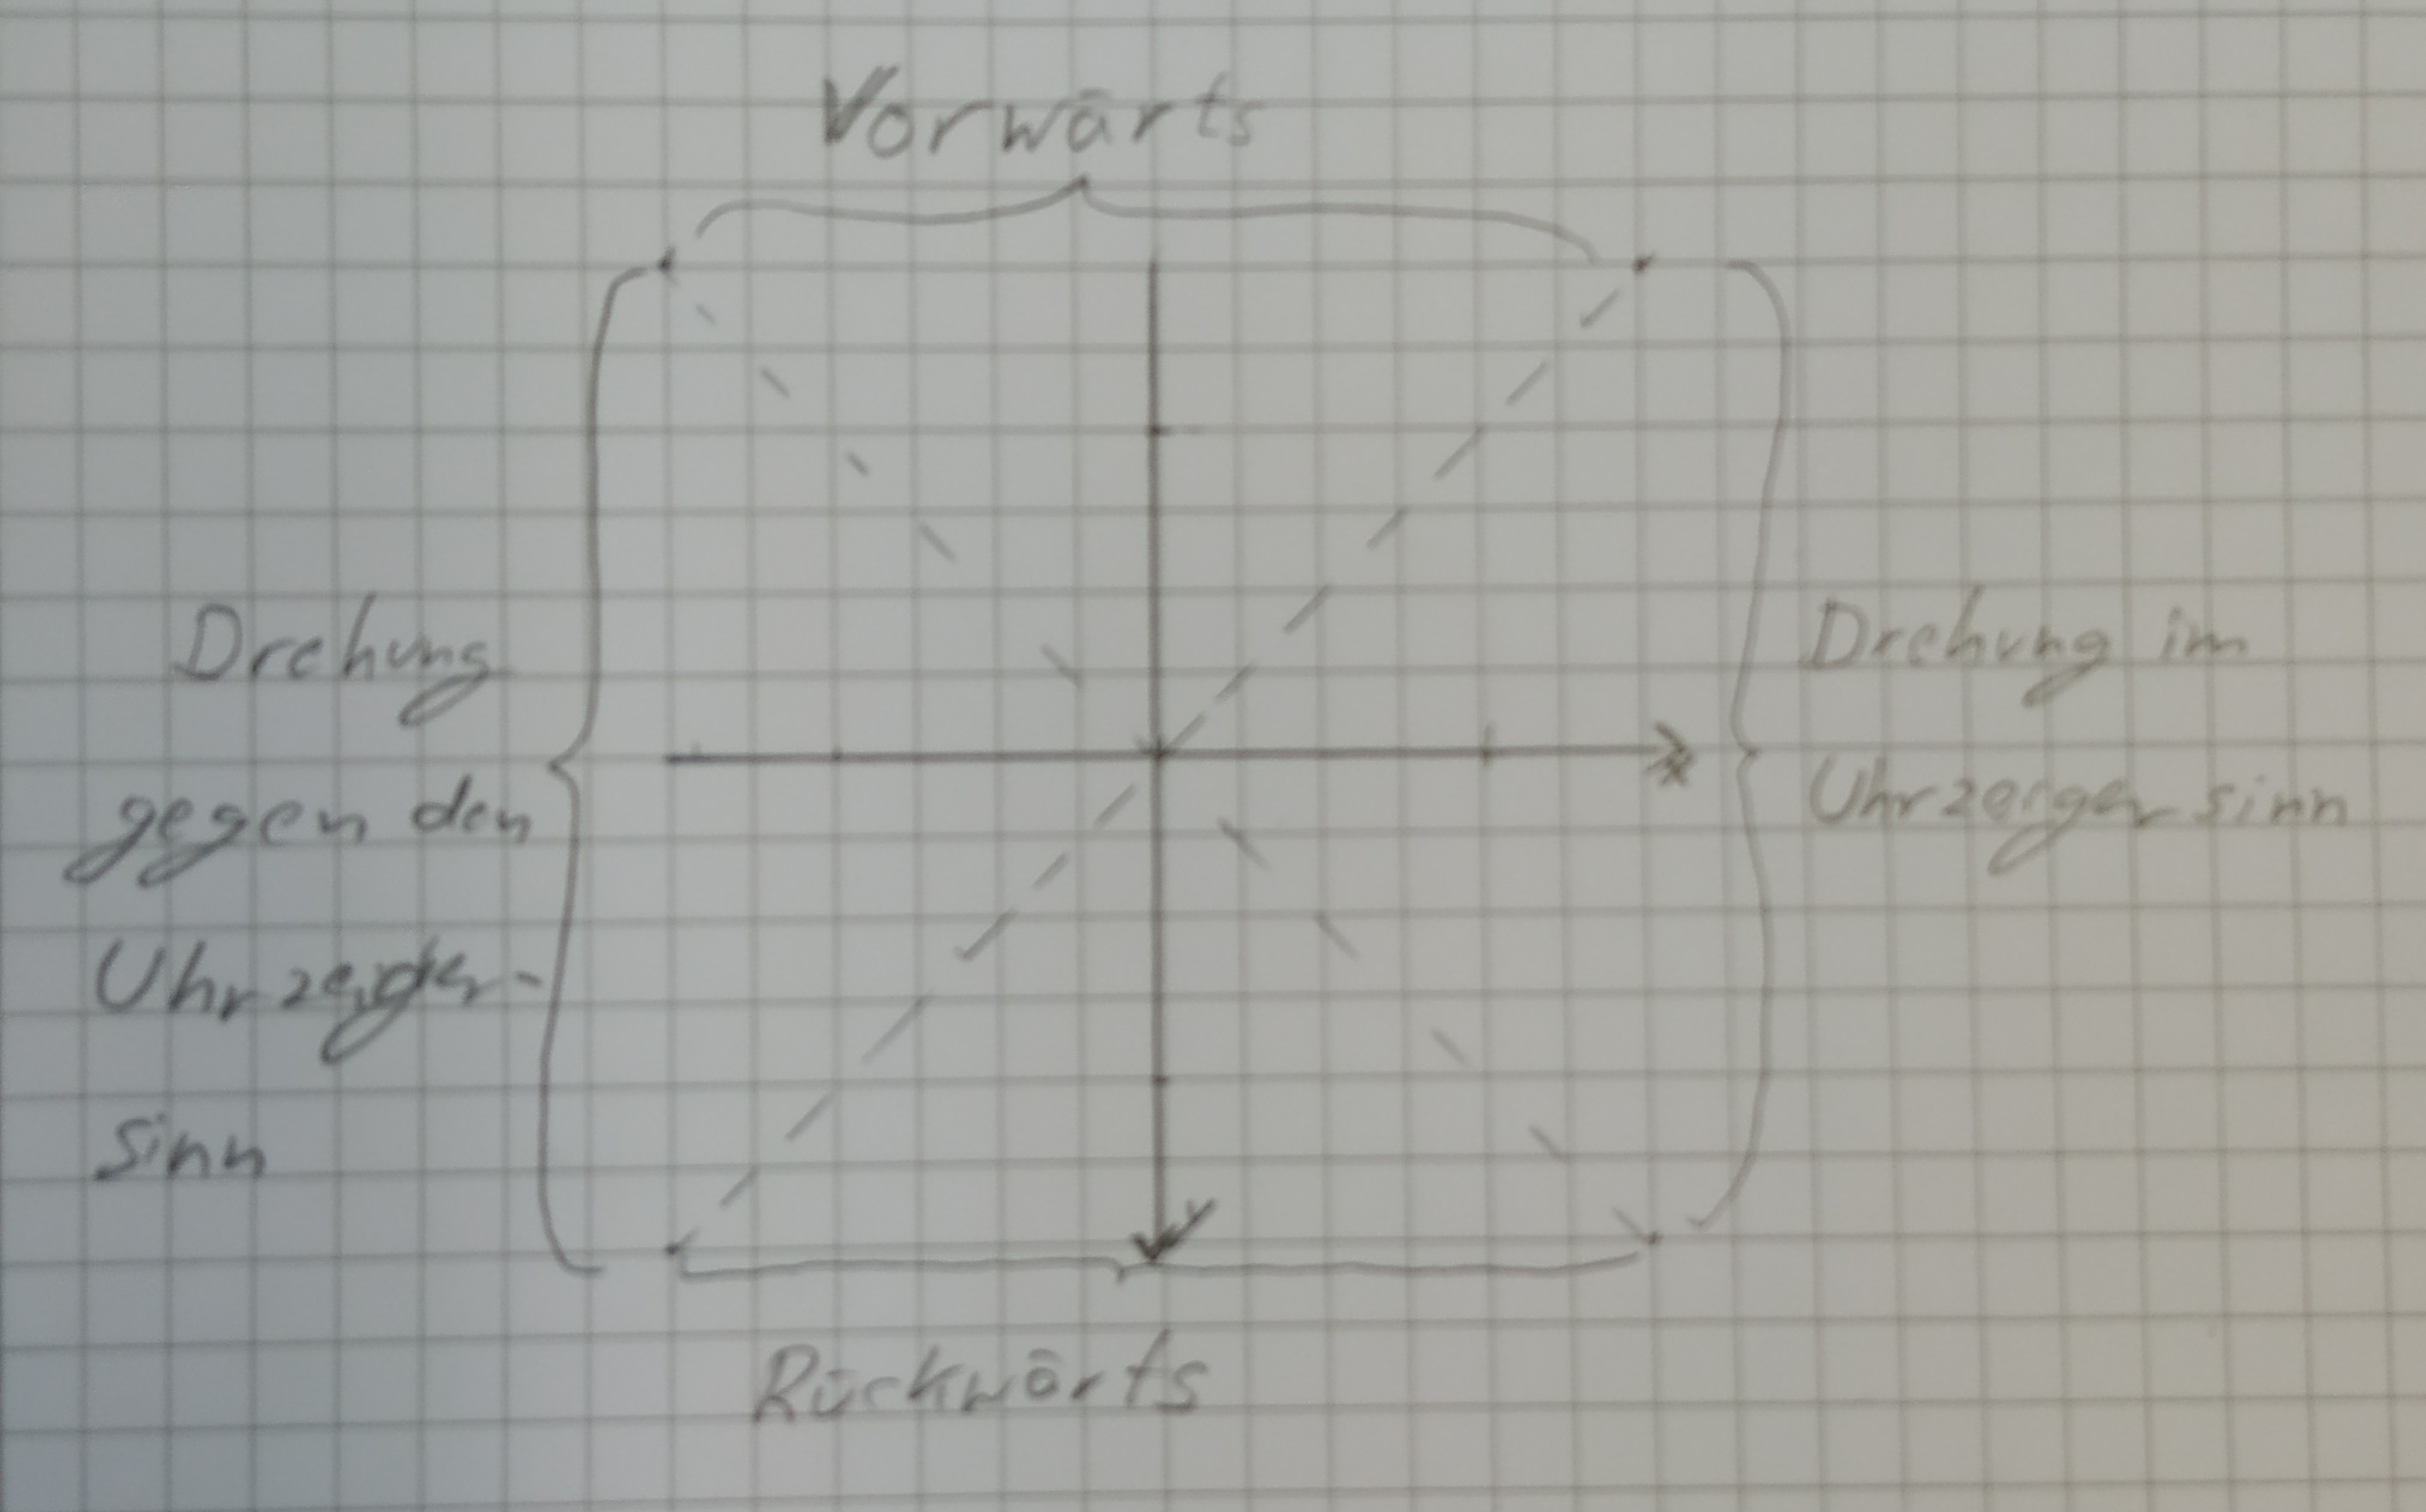 Vorwärts
Drehung
gegen den
Uhrzeiger-
sinn
Drehung im
Uhrzeigersinn
x
y
Rückwärts